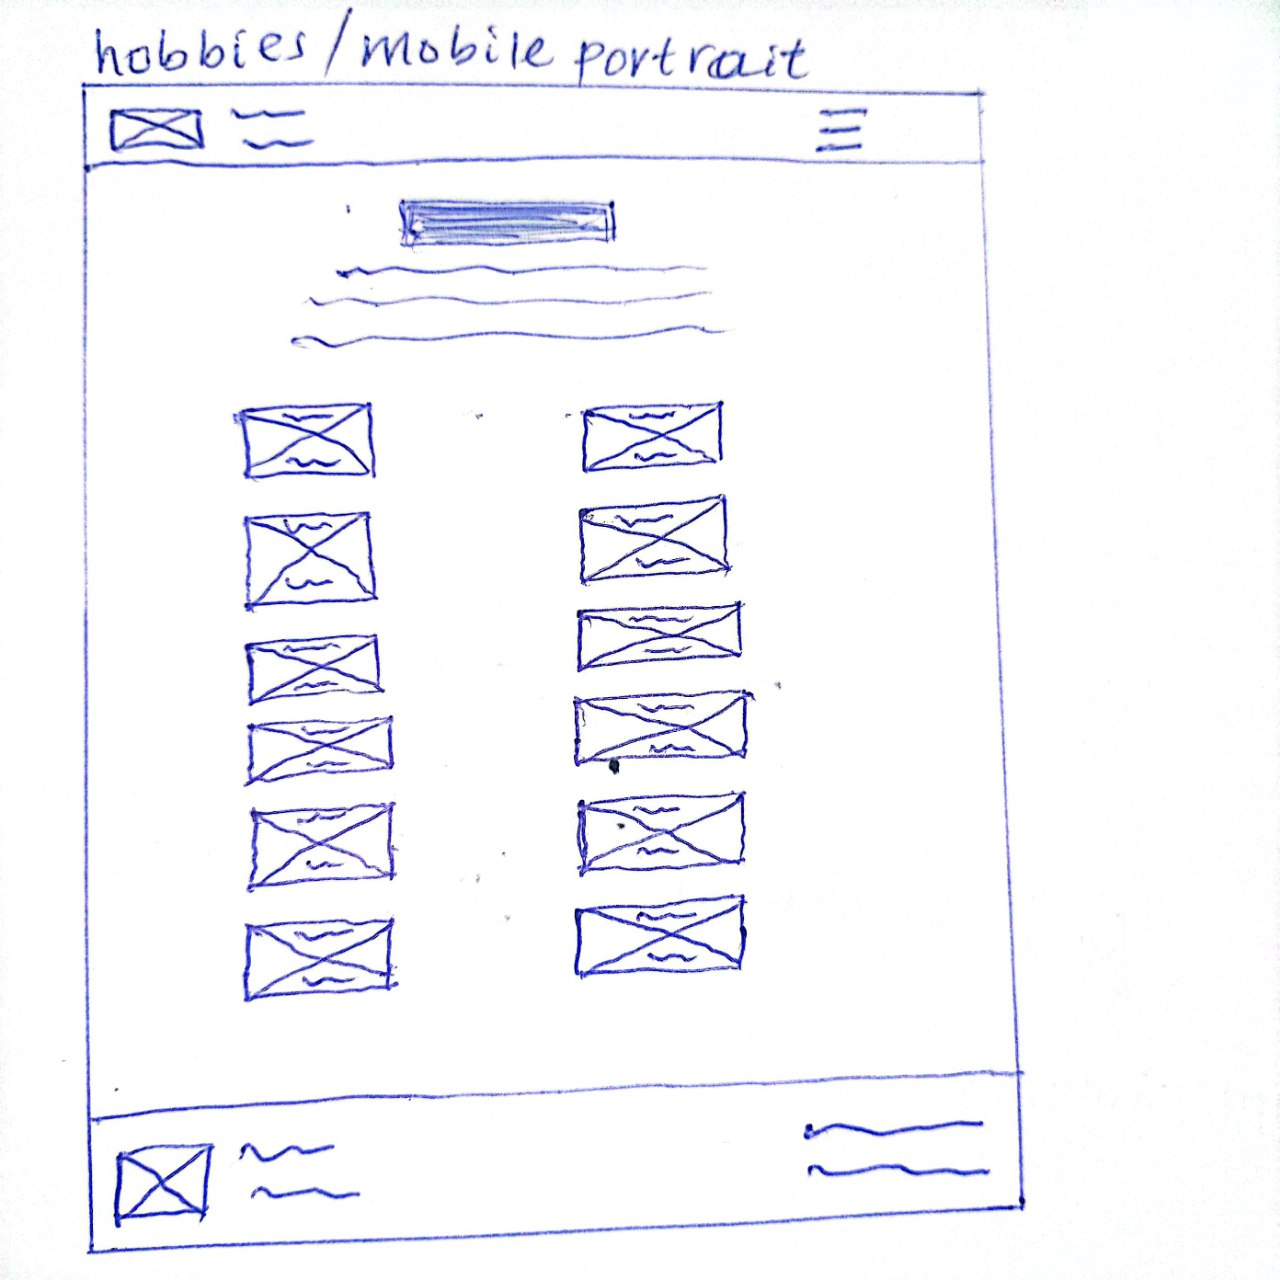 hobbies/mobile portrait